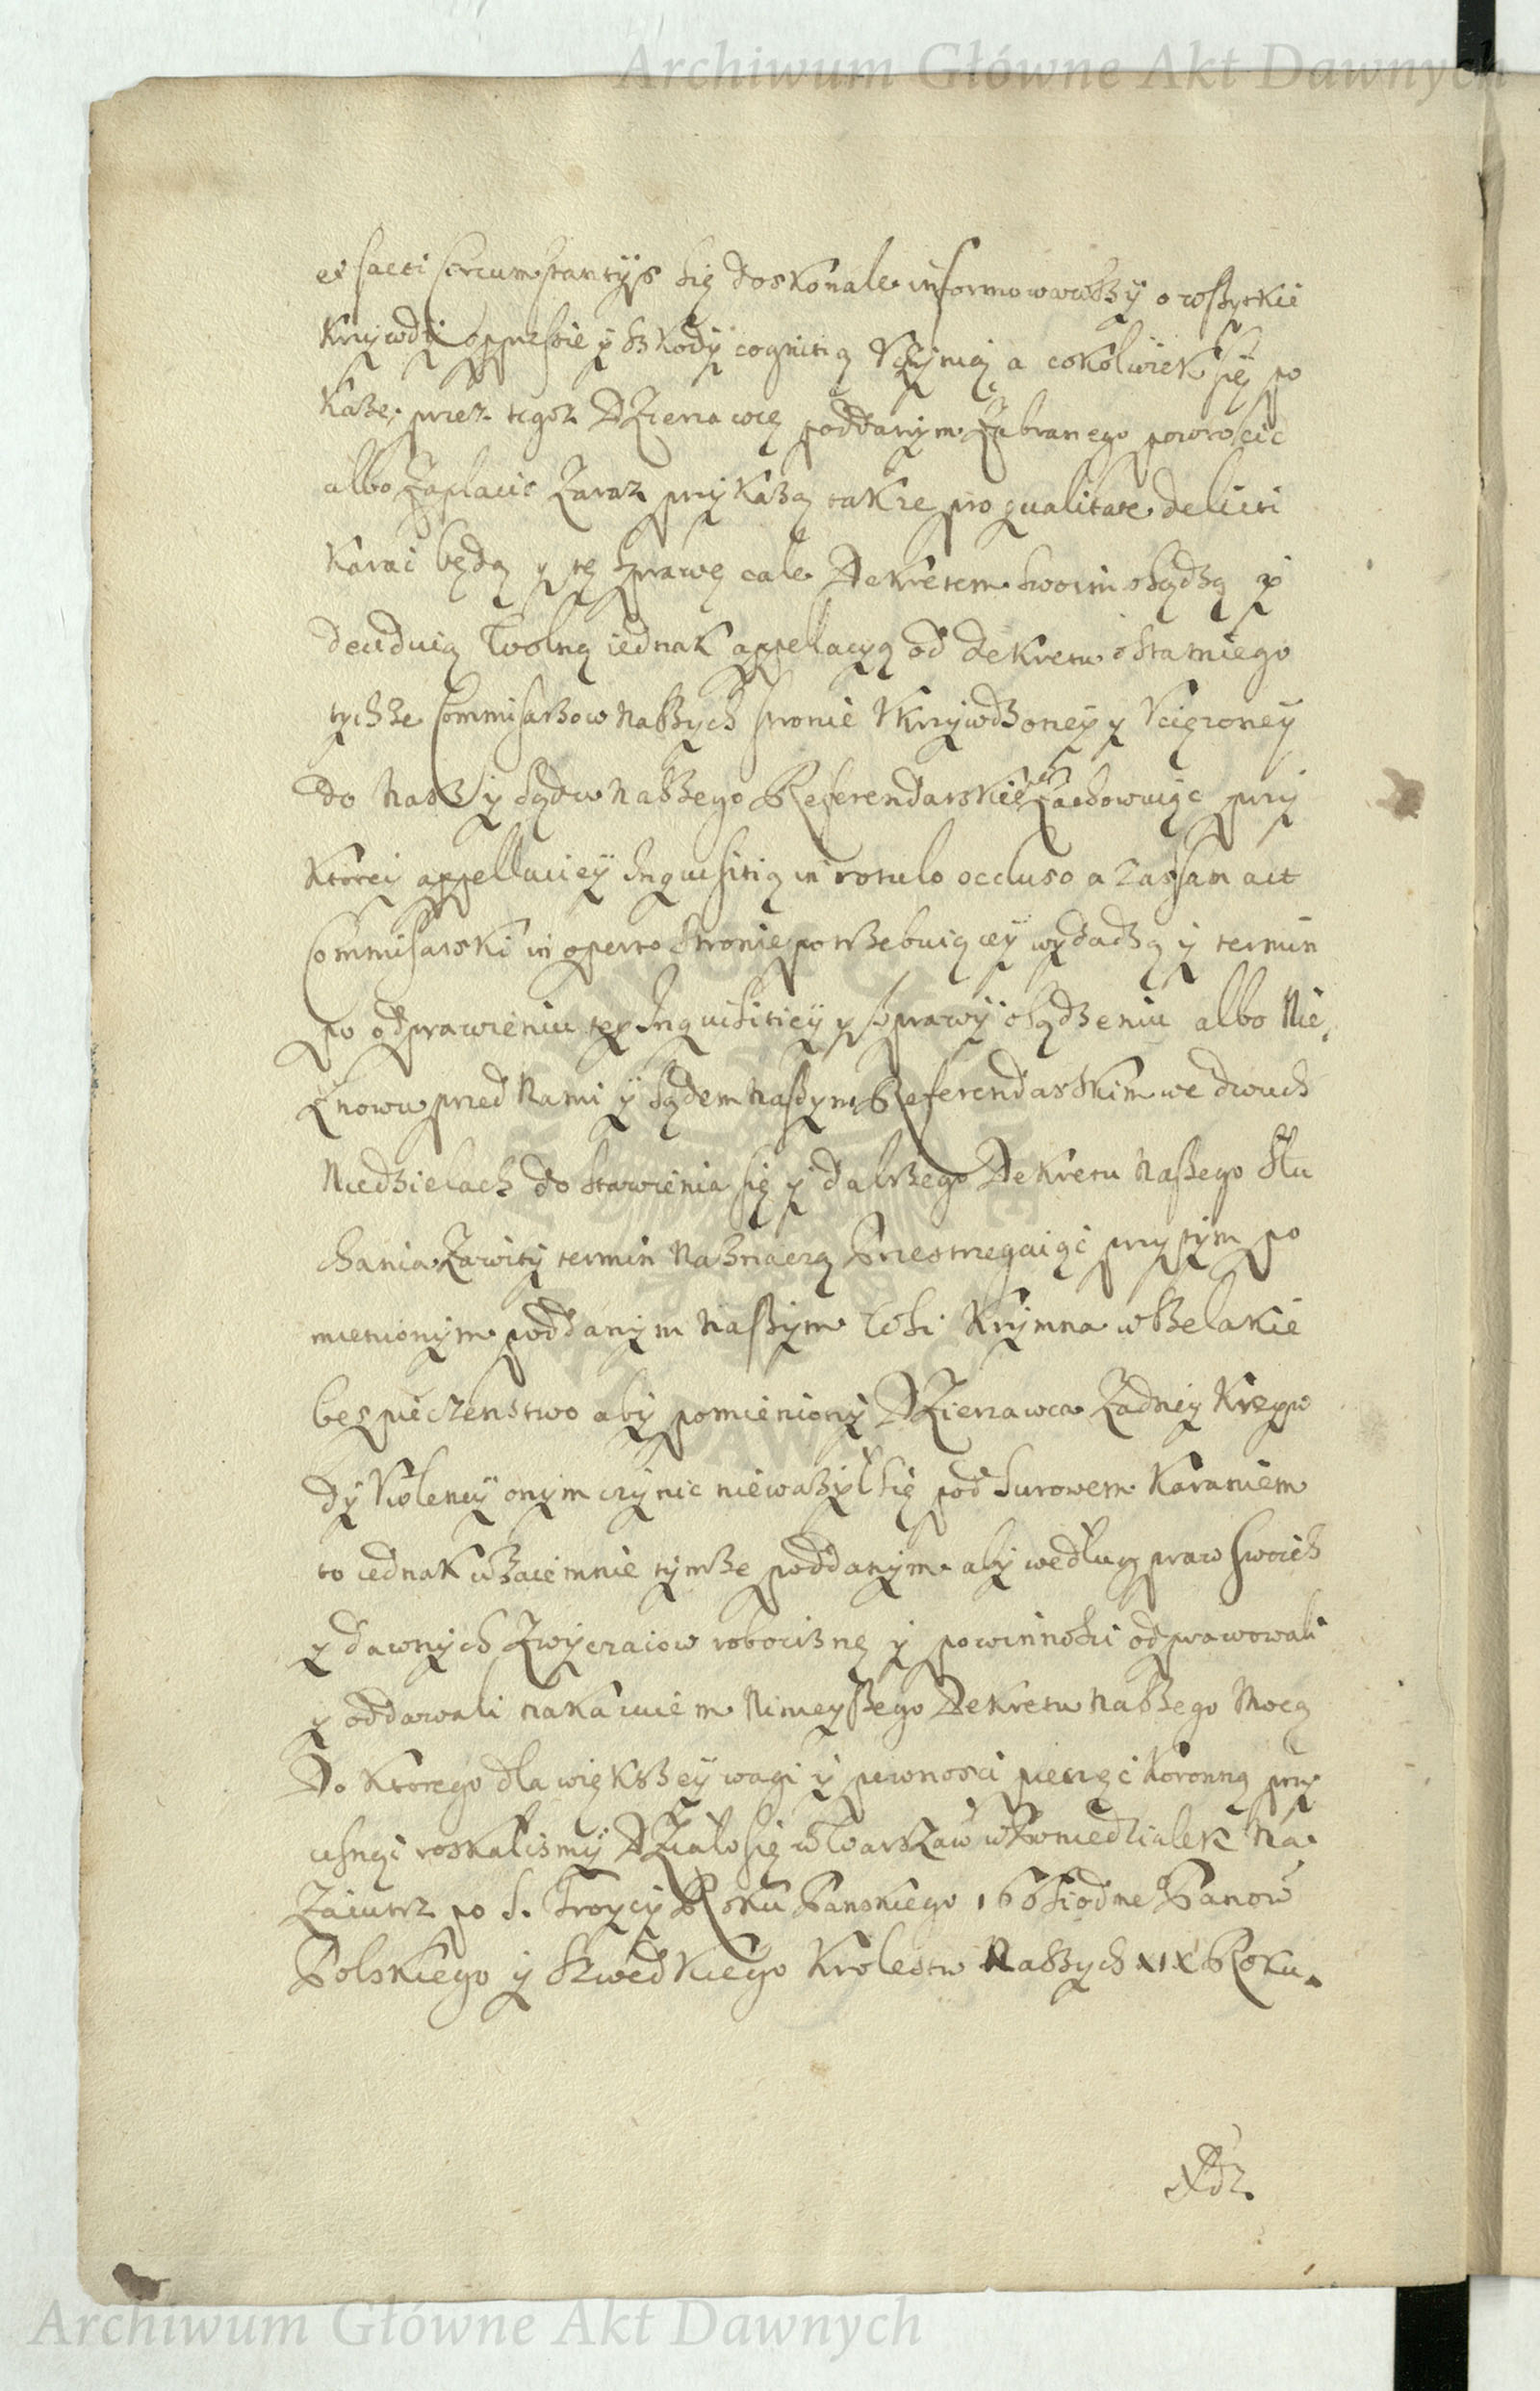 Archiwum Główne Akt Dawnych
et facti circumstantÿs się doskonale informowawszÿ o wszytkie
krzywdÿ oppressie ÿ szkodÿ cognitią Vczynią a cokolwiek się po
każe, przez tegoż Dzierzawcę poddanym zabranego powrocic
albo zaplacic zaraz przykażą takze pro qualitate delicti
karac będą y tę sprawę cale Dekretem swoim osądzą ÿ
deciduią Wolną iednak appellacyą od dekretu ostatniego
tychże Commissarzow naszych stronie Vkrzywdzoneÿ y Vciązoneÿ
do nas ÿ sądow naszego Referendarskie zachowuiąc przÿ
ktorei appellacieÿ Inquisitią in rotulo occluso a zas sam act
Commissarski in operto stronie potrzebuiąceÿ wydadzą ÿ termin
po odprawieniu teÿ Inquisitieÿ y sprawÿ osądzeniu albo nie,
znowu przed nami ÿ sądem naszym Referendarskim we dwuch
niedzielach do stawienia się ÿ dalszego Dekretu naszego słu
chania zawitÿ termin naznaczą Przestrzegaiąc przytym po
mienionym poddanym naszym wsi Krzymna wszelakie
bespieczenstwo abÿ pomienionÿ Dzierzawca zadneÿ krzyw
dÿ Violencÿ onym czynic nieważÿł się pod surowem karaniem
to iednak wzaiemnie tymże poddanym abÿ według praw swoich
y dawnych zwyczaiow robociznę ÿ powinnosci odprawowali
y oddawali nakazuiem ninieyszego Dekretu naszego mocą
Do ktorego dla większeÿ wagi ÿ pewnosci pieczęc koronną przy
cisnąc roskalismÿ Działo się w Warszaw w Poniedziałek na
zaiutrz po S. Troycÿ Roku Panskiego 1 6 6 siodme Panow
Polskiego ÿ Szwedkiego Krolestw Naszych XIX Roku.
Archiwum Główne Akt Dawnych